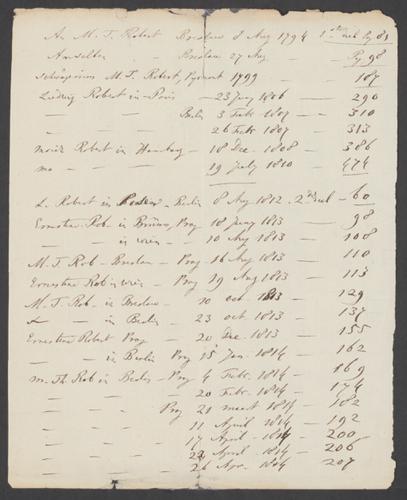 An M. T. Robert Breslau 8 Aug 1794 1ster Theil Pg 81
Anselben — Breslau 27 Aug — Pg 98
M. T. Robert, Pyrmont 1799 — 187
Ludwig Robert in Paris — 23 Juny 1806 — 290
— — Berlin 3 Febr. 1807 — 310
— — 26 Febr 1807 — 313
Moritz Robert in Hamburg — 18 Dec. 1808 — 386
mo — 19 july 1810 — 474
L. Robert in — Berlin 8 Aug 1812. 2ter Theil — 60
Ernestine Rob. in Brünn, Prag 18 juny 1813 — 98
— — in wien — 10 Aug 1813 — 108
M. T. Rob — Breslau — Prag 16 Aug 1813 — 110
Ernestine Rob in wien — Prag 19 Aug 1813 — 113
M. T. Rob — in Breslau — 10 oct 1813 — 129
L — in Berlin — 23 oct 1813 — 137
Ernestine Robert Prag — 20 Dec. 1813 — 155
— — in Berlin Prag 15 Jan. 1814 — 162
M. Th. Rob in Berlin — Prag 4 Febr. 1814 — 169
— — — 20 Febr. 1814 — 174
— — Prag 21 1814 — 182
— — — 11 April 1814 — 192
— — — 17 April 1814 — 200
— — — 22 April 1814 — 206
— — — 26 Apr. 1814 207